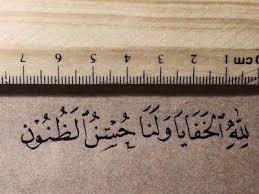 cm 1 2 3 4 5 6 7
لِلَّهِ الْخَفَايَا وَلَنَا حُسْنُ الظُّنُوْن